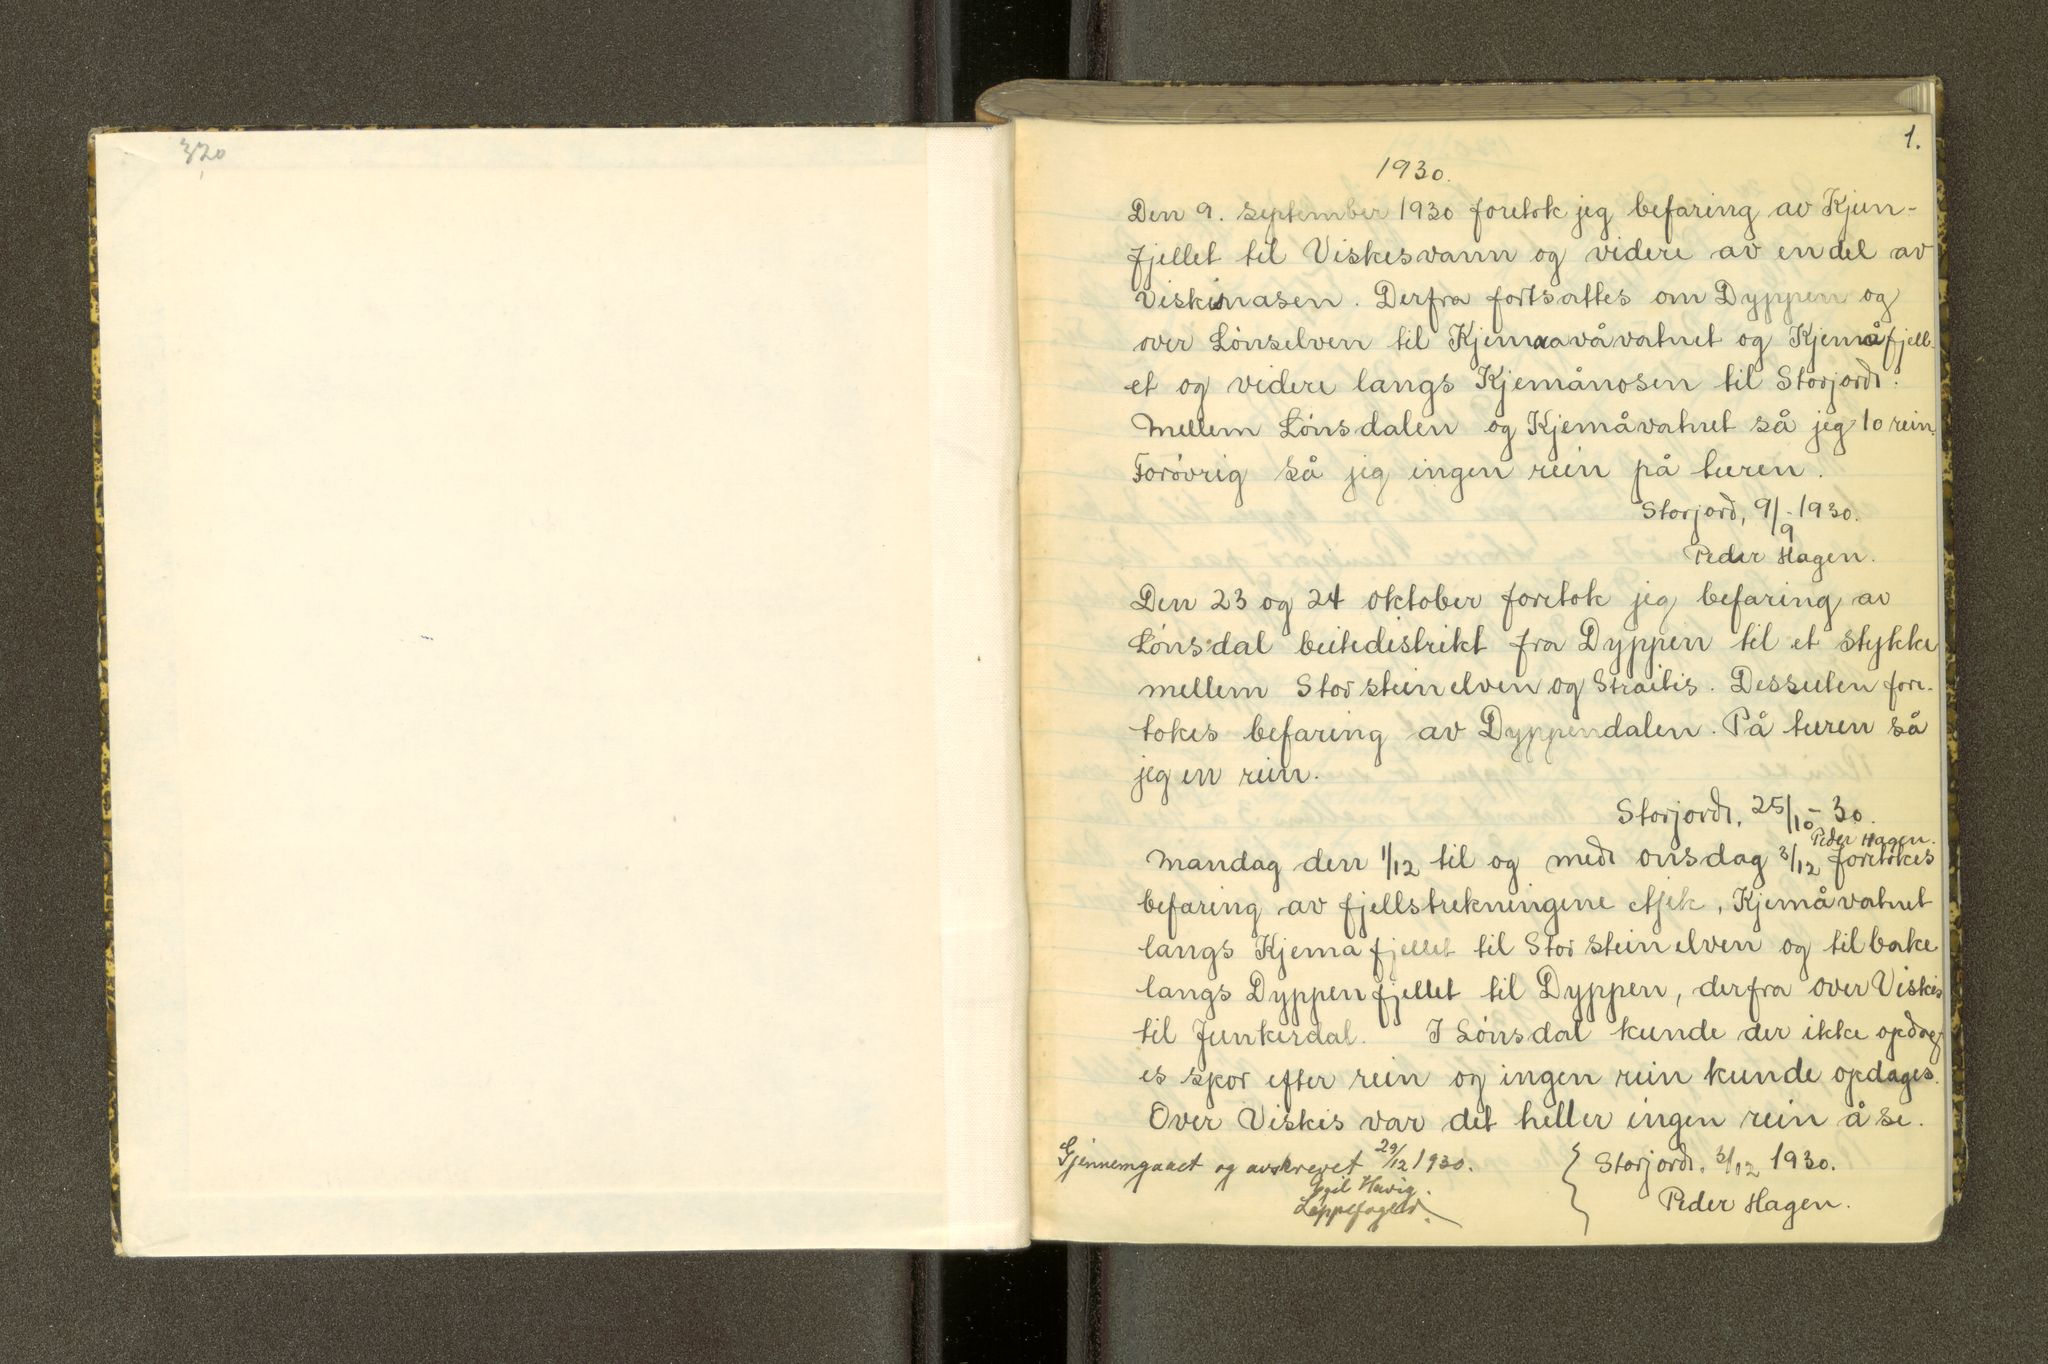 320
1.
1930.
Den 9. september 1930 foretok jeg befaring av Kjun-
fjellet til Viskesvann og videre av endel av
Viskisnasen. Derfra fortsattes om Dyppen og
over Lønselven til Kjemaavåvatnet og Kjemåfjell-
et og videre langs Kjemånosen til Storjord.
Mellem Lønsdalen og Kjemåvatnet så jeg 10 rein.
Forøvrig så jeg ingen rein på turen.
Storjord, 9/9-1930.
Peder Hagen.
Den 23 og 24 oktober foretok jeg befaring av
Lønsdal beitedistrikt fra Dyppen til et stykke
mellem Storsteinelven og Straitis. Dessuten fore-
tokes befaring av Dyppendalen. På turen så
jeg en rein.
Storjord, 25/10-30.
Peder Hagen.
Mandag den 1/12 til og med onsdag 3/12 foretokes
befaring av fjellstrekningene Kjemåvatnet
langs Kjemafjellet til Storsteinelven og tilbake
langs Dyppenfjellet til Dyppen, derfra over Viskis
til Junkerdal. I Lønsdal kunde der ikke opdag-
es spor efter rein og ingen rein kunde opdages.
Over Viskis var det heller ingen rein å se.
Gjennemgaaet og avskrevet 29/12 1930.
Egil Havig.
Lappefoged.
Storjord, 3/12 1930.
Peder Hagen.